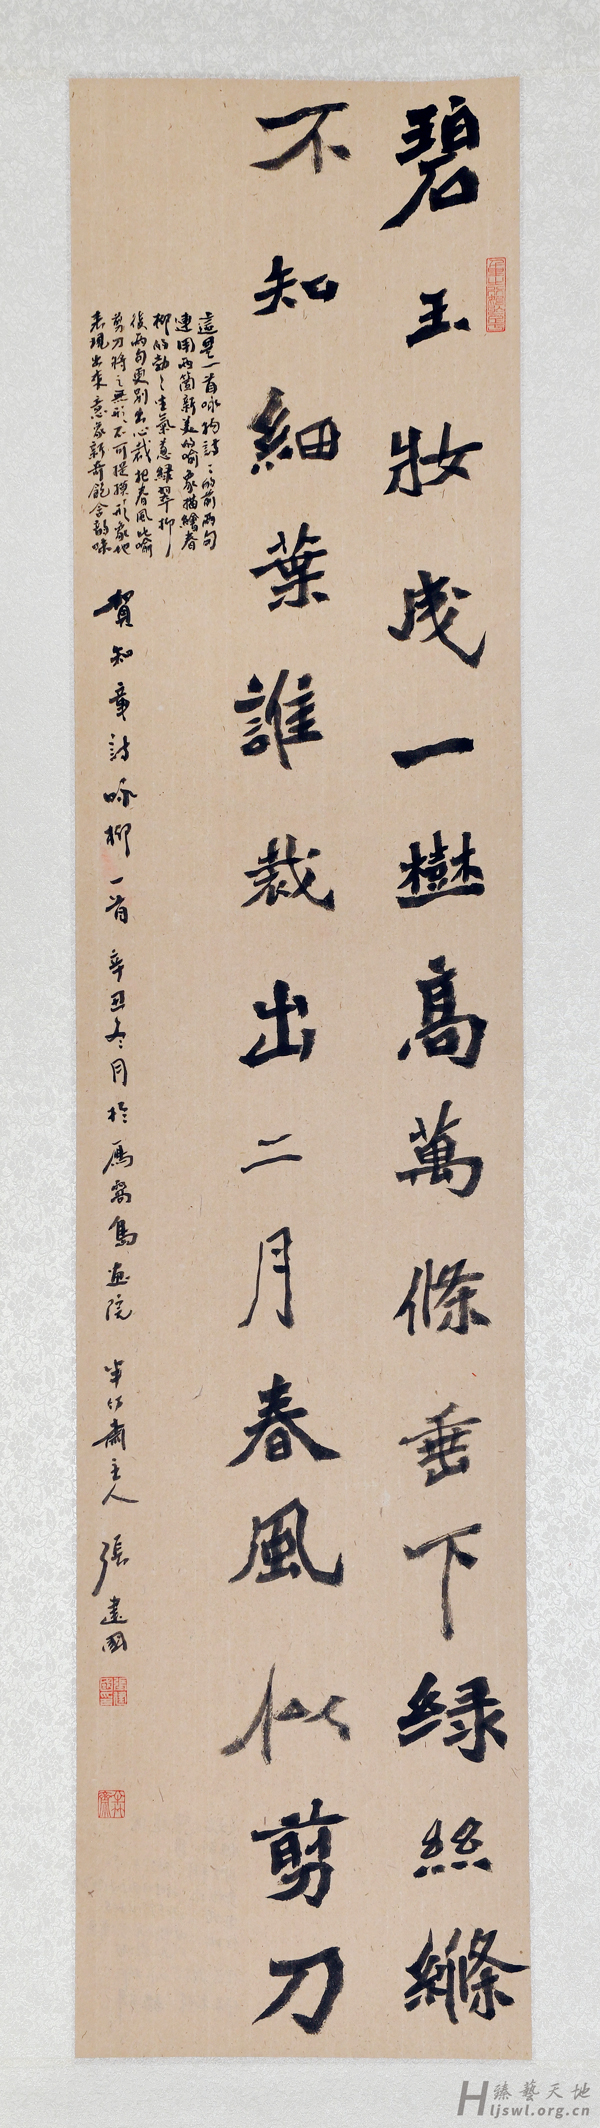 碧玉妝成一樹高萬條垂下綠絲絛
不知細葉誰裁出二月春風似剪刀
這是一首咏物詩〻的前兩句
連用兩箇新美的喻象描繪春
柳的勃〻生氣蔥綠翠柳
後兩句更別出心裁把春風比喻
剪刀將之無形不可捉摸形象地
表現出來意象新奇飽含韵味
賀知章詩咏柳一首辛丑冬月於馬窩島畫院 半竹齋主人 張建國
臻藝天地
Hljswl.org.cn